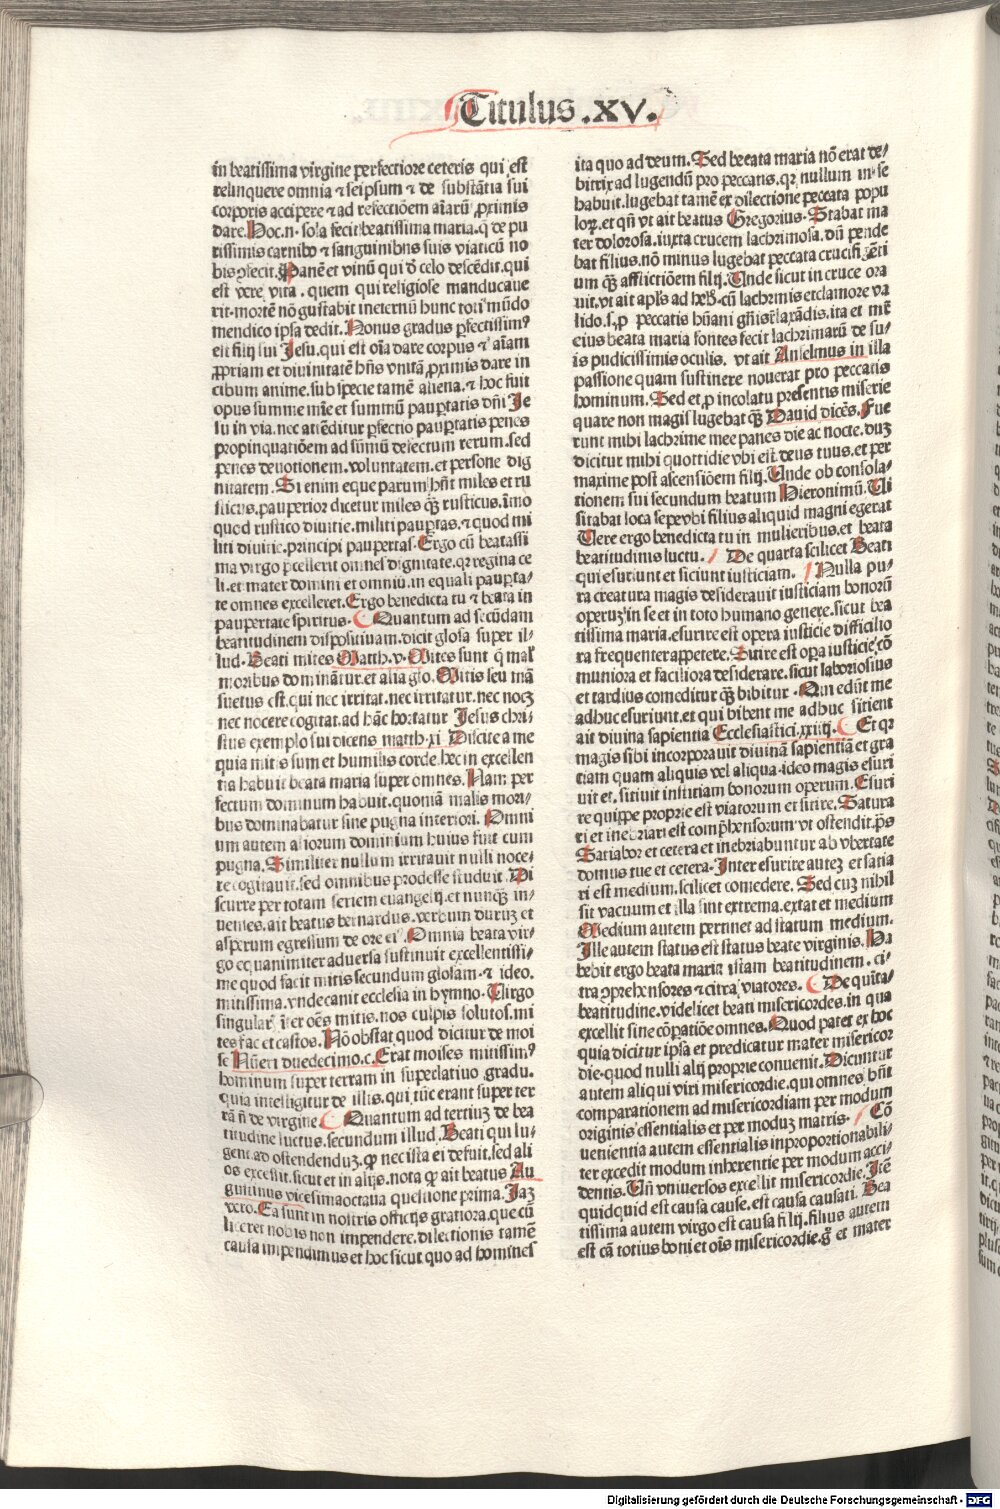 Titulus .XV.
in beatissima virgine perfectiore ceteris qui est
relinquere omnia ⁊ seipsum ⁊ de substãtia sui
corporis accipere ⁊ ad refectiõem aĩarũ ꝓximis
dare. Hoc .n. sola fecit beatissima maria. q̃ de pu
rissimis carnibꝰ ⁊ sanguinibus suis viaticũ no
bis ꝯfecit. Panẽ et vinũ qui d̃ celo descẽdit. qui
est vere vita . quem qui religiose manducaue
rit. mortẽ nõ gustabit ineternũ hunc toti mũdo
mendico ipsa dedit. Nonus gradus ꝑfectissimꝰ
est filij sui Jesu. qui est oĩa dare corpus ⁊ aĩam
ꝓpriam et diuinitatẽ hñs vnitã ꝓximis dare in
cibum anime. sub specie tamẽ aliena. ⁊ hoc fuit
opus summe mĩe et summũ pauꝑtatis dñi Je
su in via. nec attẽditur ꝑfectio pauꝑtatis penes
propinquatiõem ad sũmũ defectum rerum. sed
penes deuotionem. voluntatem. et persone dig
nitatem. Si enim eque parum hñt miles et ru
sticus. pauperior dicetur miles q̃ꝫ rusticus. ĩmo
quod rustico diuitie. militi pauꝑtas. ⁊ quod mi
liti diuitie. principi paupertas. Ergo cũ beatissi
ma virgo p̃cellerit omnes dignitate. qꝛ regina ce
li. et mater domini et omniũ. in equali pauꝑta-
te omnes excelleret. Ergo benedicta tu ⁊ beata in
paupertate spiritus. Quantum ad secũdam
beatitudinem dispositiuam. dicit glosa super il-
lud. Beati mites Matth. v. Mites sunt q̃ mal'
moribus dominãtur. et alia glo. Mitis seu mã
suetus est. qui nec irritat. nec irritatur. nec nocꝫ
nec nocere cogitat. ad hãc hortatur Jesus chri-
stus exemplo sui dicens matth. xi. Discite a me
quia mitis sum et humilis corde. hec in excellen
tia habuit beata maria super omnes. Nam per
fectum dominum habuit. quoniã malis mori-
bus dominabatur sine pugna interiori. Omni
um autem aliorum dominium huius fuit cum
pugna. Similiter nullum irritauit nulli noce-
re cogitauit. sed omnibus prodesse studuit. Di
scurre per totam seriem euangelij. et nunq̃ꝫ in-
uenies. ait beatus bernardus. verbum durum et
asperum egressum de ore eiꝰ. Omnia beata vir-
go equanimiter aduersa sustinuit excellentissi-
me quod facit mitis secundum glosam. ⁊ ideo.
mitissima. vnde canit ecclesia in hymno. Uirgo
singularꝭ ĩter oẽs mitis. nos culpis solutos. mi
tes fac et castos. Nõ obstat quod dicitur de moi
se Nũeri duedecimo. c. Erat moises mitissimꝰ
hominum super terram in superlatiuo gradu.
quia intelligitur de illis. qui tũc erant super ter
rã ñ de virgine. Quantum ad tertiuꝫ de bea
titudine luctus. secundum illud. Beati qui lu-
gent. ad ostendenduꝫ. ꝙ nec ista ei defuit. sed ali
os excessit. sicut et in alijs. nota ꝙ ait beatus Au
gustinus vicesimaoctaua questione prima. Jaꝫ
vero. Ea sunt in nostris officijs gratiora. que cũ
liceret nobis non impendere. dilectionis tamẽ
causa impendimus et hoc sicut quo ad homines
ita quo ad deum. Sed beata maria nõ erat de-
bitrix ad lugendũ pro peccatis. qꝛ nullum in se
habuit. lugebat tamẽ ex dilectione peccata popu
loꝝ. et qñ vt ait beatus Gregorius. Stabat ma
ter dolorosa. iuxta crucem lachrimosa. dũ pende
bat filius. nõ minus lugebat peccata crucifigẽti
um q̃ꝫ afflictiõem filij. Unde sicut in cruce ora
uit. vt ait apl̃s ad heb̃. cũ lachrimis et clamore va
lido. s. ꝓ peccatis hũani gñis elaxãdis. ita et mr̃
eius beata maria fontes fecit lachrimarũ de su-
is pudicissimis oculis. vt ait Anselmus in illa
passione quam sustinere nouerat pro peccatis
hominum. Sed et ꝓ incolatu presentis miserie
quare non magis lugebat q̃ꝫ Dauid dicẽs. Fue
runt mihi lachrime mee panes die ac nocte. duꝫ
dicitur mihi quottidie vbi est deus tuus. et per
maxime post ascensiõem filij. Unde ob consola-
tionem sui secundum beatum Hieronimũ. Ui
sitabat loca sepe vbi filius aliquid magni egerat
Uere ergo benedicta tu in mulieribus. et beata
beatitudinis luctu. De quarta scilicet Beati
qui esuriunt et siciunt iusticiam. Nulla pu-
ra creatura magis desiderauit iusticiam bonorũ
operuꝫ in se et in toto humano genere. sicut bea
tissima maria. esurire est opera iusticie difficilio
ra frequenter appetere. Sitire est oꝑa iusticie cõ
muniora et faciliora desiderare. sicut laboriosius
et tardius comeditur q̃ꝫ bibitur. Qui edũt me
adhuc esuriunt. et qui bibent me adhuc sitient
ait diuina sapientia Ecclesiastici. xxiiij. Et qꝛ
magis sibi incorporauit diuinã sapientiã et gra
tiam quam aliquis vel aliqua. ideo magis esuri
uit et. sitiuit iustitiam bonorum operum. Esuri
re quippe proprie est viatorum et sitire. Satura
ri et inebriari est comp̃hensorum vt ostendit. p̃s
Satiabor et cetera et inebriabuntur ab vbertate
domus tue et cetera. Inter esurire auteꝫ et satia
ri est medium. scilicet comedere. Sed cuꝫ nihil
sit vacuum et illa sint extrema. extat et medium
Medium autem pertinet ad statum medium.
Ille autem status est status beate virginis. Ha
bebit ergo beata maria istam beatitudinem. ci-
tra ꝯprehensores ⁊ citra viatores. De quita-
beatitudine. videlicet beati misericordes. in qua
excellit sine cõꝑatiõe omnes. Quod patet ex hoc
quia dicitur ipsa et predicatur mater misericor
die. quod nulli alij proprie conuenit. Dicuntur
autem aliqui viri misericordie. qui omnes hñt
comparationem ad misericordiam per modum
originis essentialis et per moduꝫ matris. Cõ
uenientia autem essentialis inproportionabili-
ter excedit modum inherentie per modum acci-
dentis. Uñ vniuersos excellit misericordie. Itẽ
quidquid est causa cause. est causa causati. Bea
tissima autem virgo est causa filij. filius autem
est cã totius boni et oĩs misericordie. g̃ et mater
Digitalisierung gefördert durch die Deutsche Forschungsgemeinschaft - DFG